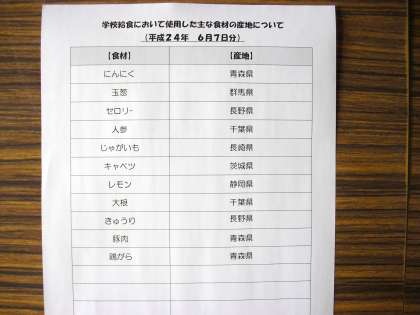 学校給食において使用した主な食材の産地について
（平成２４年　６月７日分）
【食材】　【産地】
にんにく　青森県
玉葱　群馬県
セロリー　長野県
人参　千葉県
じゃがいも　長崎県
キャベツ　茨城県
レモン　静岡県
大根　千葉県
きゅうり　長野県
豚肉　青森県
鶏がら　青森県